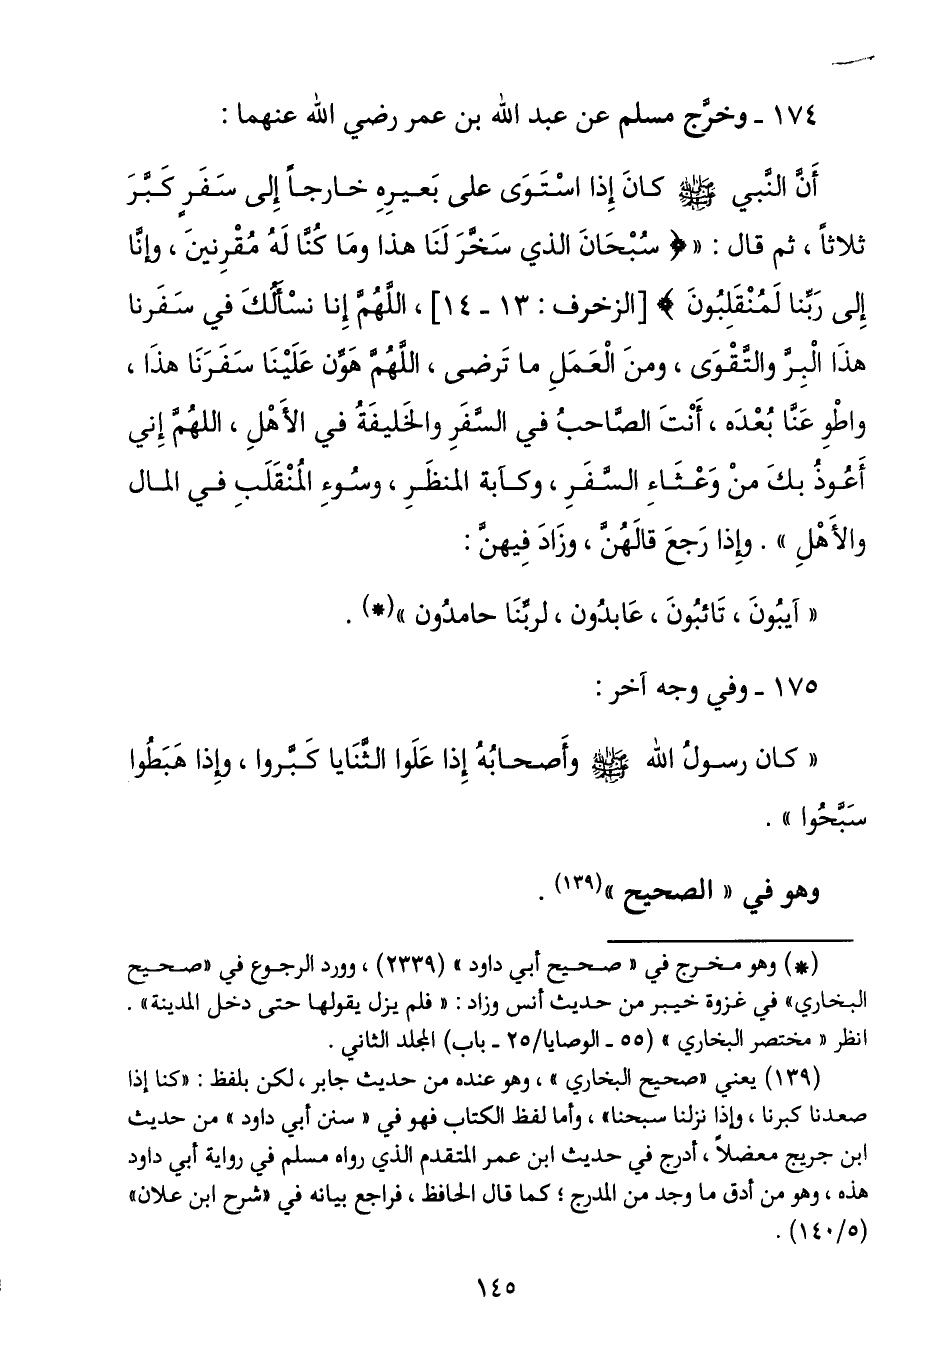 ١٧٤ ـ وخرَّج مسلم عن عبد الله بن عمر رضي الله عنهما :
أَنَّ النَّبي ﷺ كانَ إِذا اسْتَوَى على بَعيرِهِ خارجاً إِلى سَفَرٍ كَبَّرَ
ثلاثاً ، ثم قال : « ﴿ سُبْحَانَ الذي سَخَّرَ لَنَا هذا ومَا كُنَّا لَهُ مُقْرِنينَ ، وإنَّا
إلى رَبِّنا لَمُنْقَلِبُونَ ﴾ [الزخرف : ١٣ ـ ١٤] ، اللَّهُمَّ إِنا نسْأَلُكَ في سَفَرنا
هذَا الْبِرَّ والتَّقْوَى ، ومنَ الْعَمَلِ ما تَرضى ، اللَّهُمَّ هَوَّن عَلَيْنَا سفَرَنَا هذَا ،
واطْوِ عَنَّا بُعْدَه ، أَنْتَ الصَّاحبُ في السَّفَرِ والخَليفَةُ في الأَهْلِ ، اللهُمَّ إِني
أَعُوذُ بكَ منْ وَعْثَاءِ السَّفَرِ ، وكآبة المنظَرِ ، وسُوءِ المُنْقَلَبِ في المال
والأَهْلِ » . وإِذا رَجعَ قالَهُنَّ ، وزَادَ فِيهنَّ :
« آيبُونَ ، تَائبُونَ ، عَابدُون ، لربِّنَا حامدُون »(*) .
١٧٥ ـ وفي وجه آخر :
« كان رسولُ الله ﷺ وأَصحابُهُ إِذا عَلَوا الثَّنَايا كَبَّروا ، وإِذا هَبَطُوا
سَبَّحُوا » .
وهو في « الصحيح »(١٣٩) .
(*) وهو مخرج في « صحيح أبي داود » (٢٣٣٩) ، وورد الرجوع في «صحيح
البخاري» في غزوة خيبر من حديث أنس وزاد : « فلم يزل يقولها حتى دخل المدينة» .
انظر « مختصر البخاري » (٥٥ ـ الوصايا/٢٥ ـ باب) المجلد الثاني .
(١٣٩) يعني «صحيح البخاري » ، وهو عنده من حديث جابر ، لكن بلفظ : «كنا إذا
صعدنا كبرنا ، وإذا نزلنا سبحنا» ، وأما لفظ الكتاب فهو في « سنن أبي داود » من حديث
ابن جريج معضلاً ، أدرج في حديث ابن عمر المتقدم الذي رواه مسلم في رواية أبي داود
هذه ، وهو من أدق ما وجد من المدرج ؛ كما قال الحافظ ، فراجع بيانه في «شرح ابن علان»
(١٤٠/٥) .
١٤٥